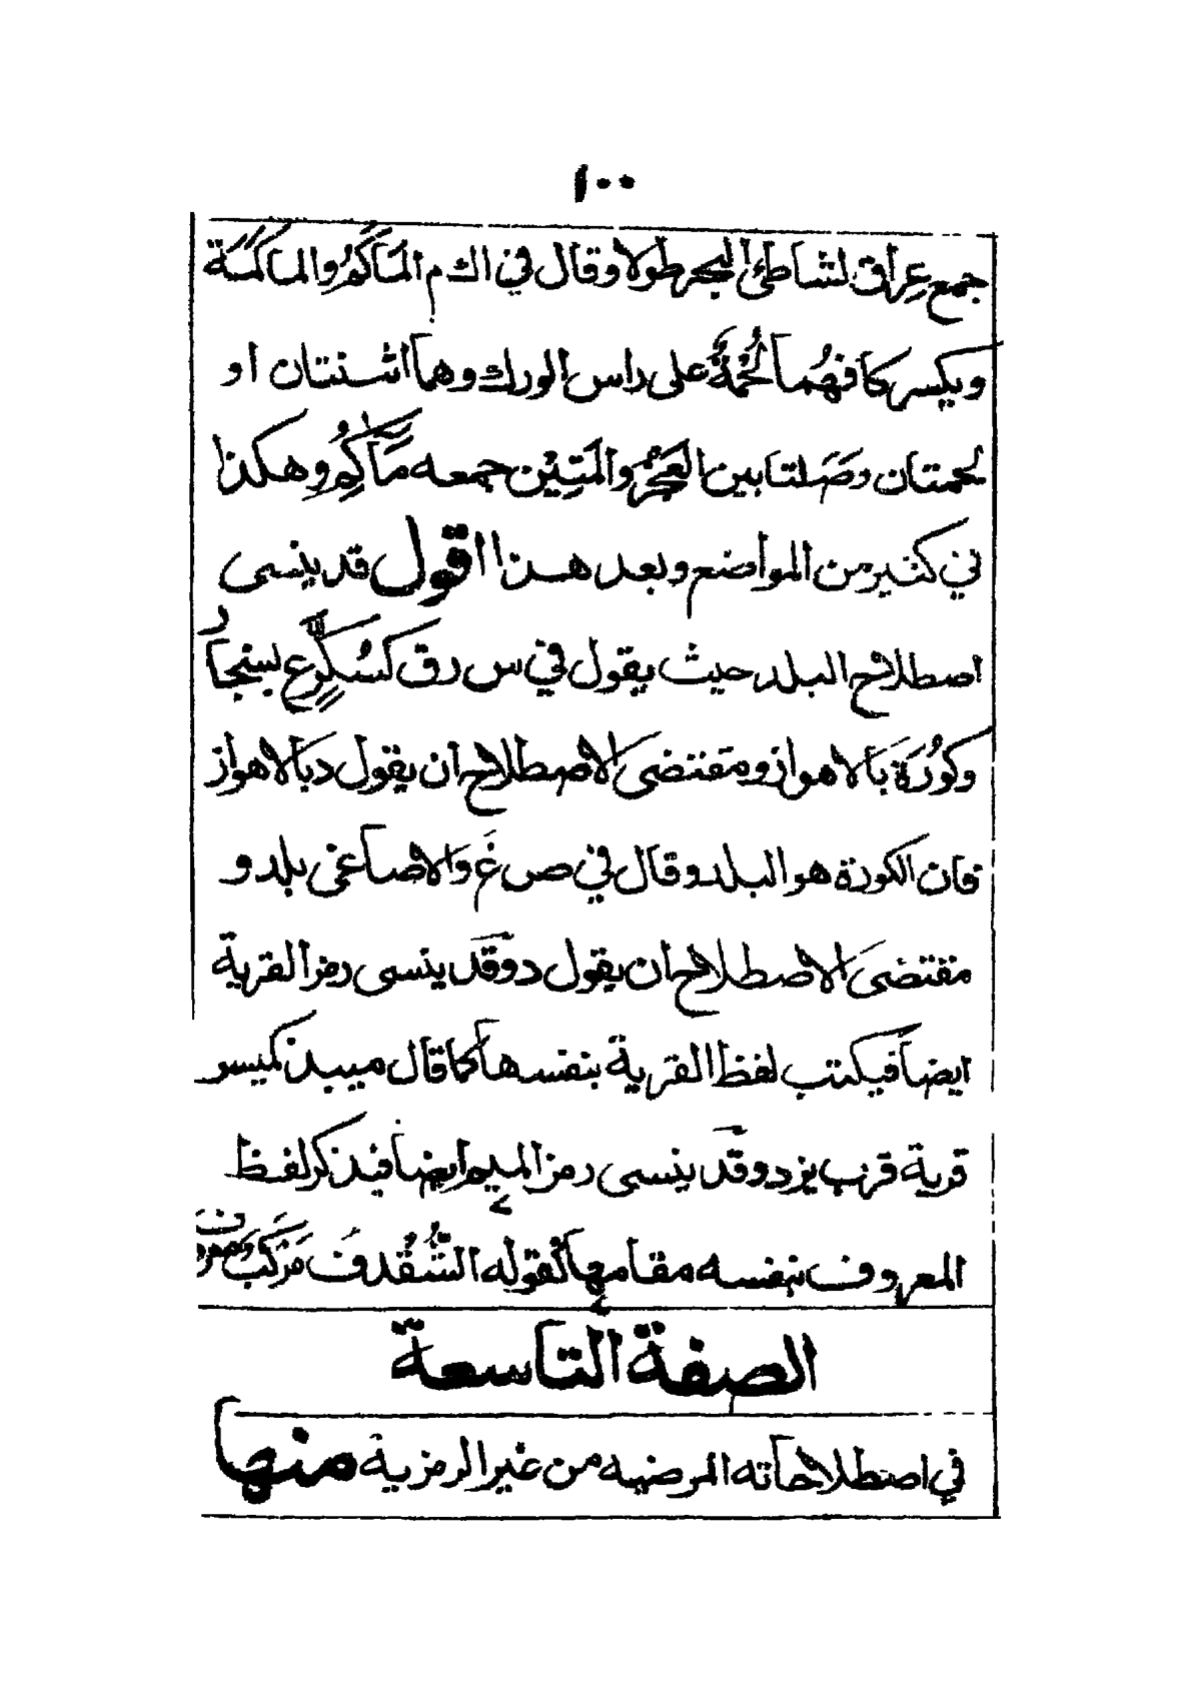 ١٠٠
جمع عِراق لشاطئ البحر طولا وقال في اك م المَأكَمُ والمأكمَة
ويكسر كافهُما لُحْمَةٌ على راس الورك وهما اثنتان او
لحمتان وصَلتا بين العَجُز والمَتنَيْن جمعه مَآكِم وهكذا
في كثير من المواضع وبعد هذا اقول قد ينسى
اصطلاح البلد حيث يقول في س رق كسُكَّر ع بسنجار
وكُورَة بالاهواز ومقتضى الاصطلاح ان يقول د بالاهواز
فان الكورة هو البلد وقال في ص غ والاصاغى بلد و
مقتضى الاصطلاح ان يقول د وقد ينسى رمز القرية
ايضا فيكتب لفظ القرية بنفسها كما قال ميبذ كميسر
قرية قرب يزد وقد ينسى رمز الميم ايضا فيذكر لفظ
المعروف بنفسه مقامها كقوله الشُّقْدف مَركَب معروف
الصفة التاسعة
في اصطلاحاته المرضيه من غير الرمزية منها